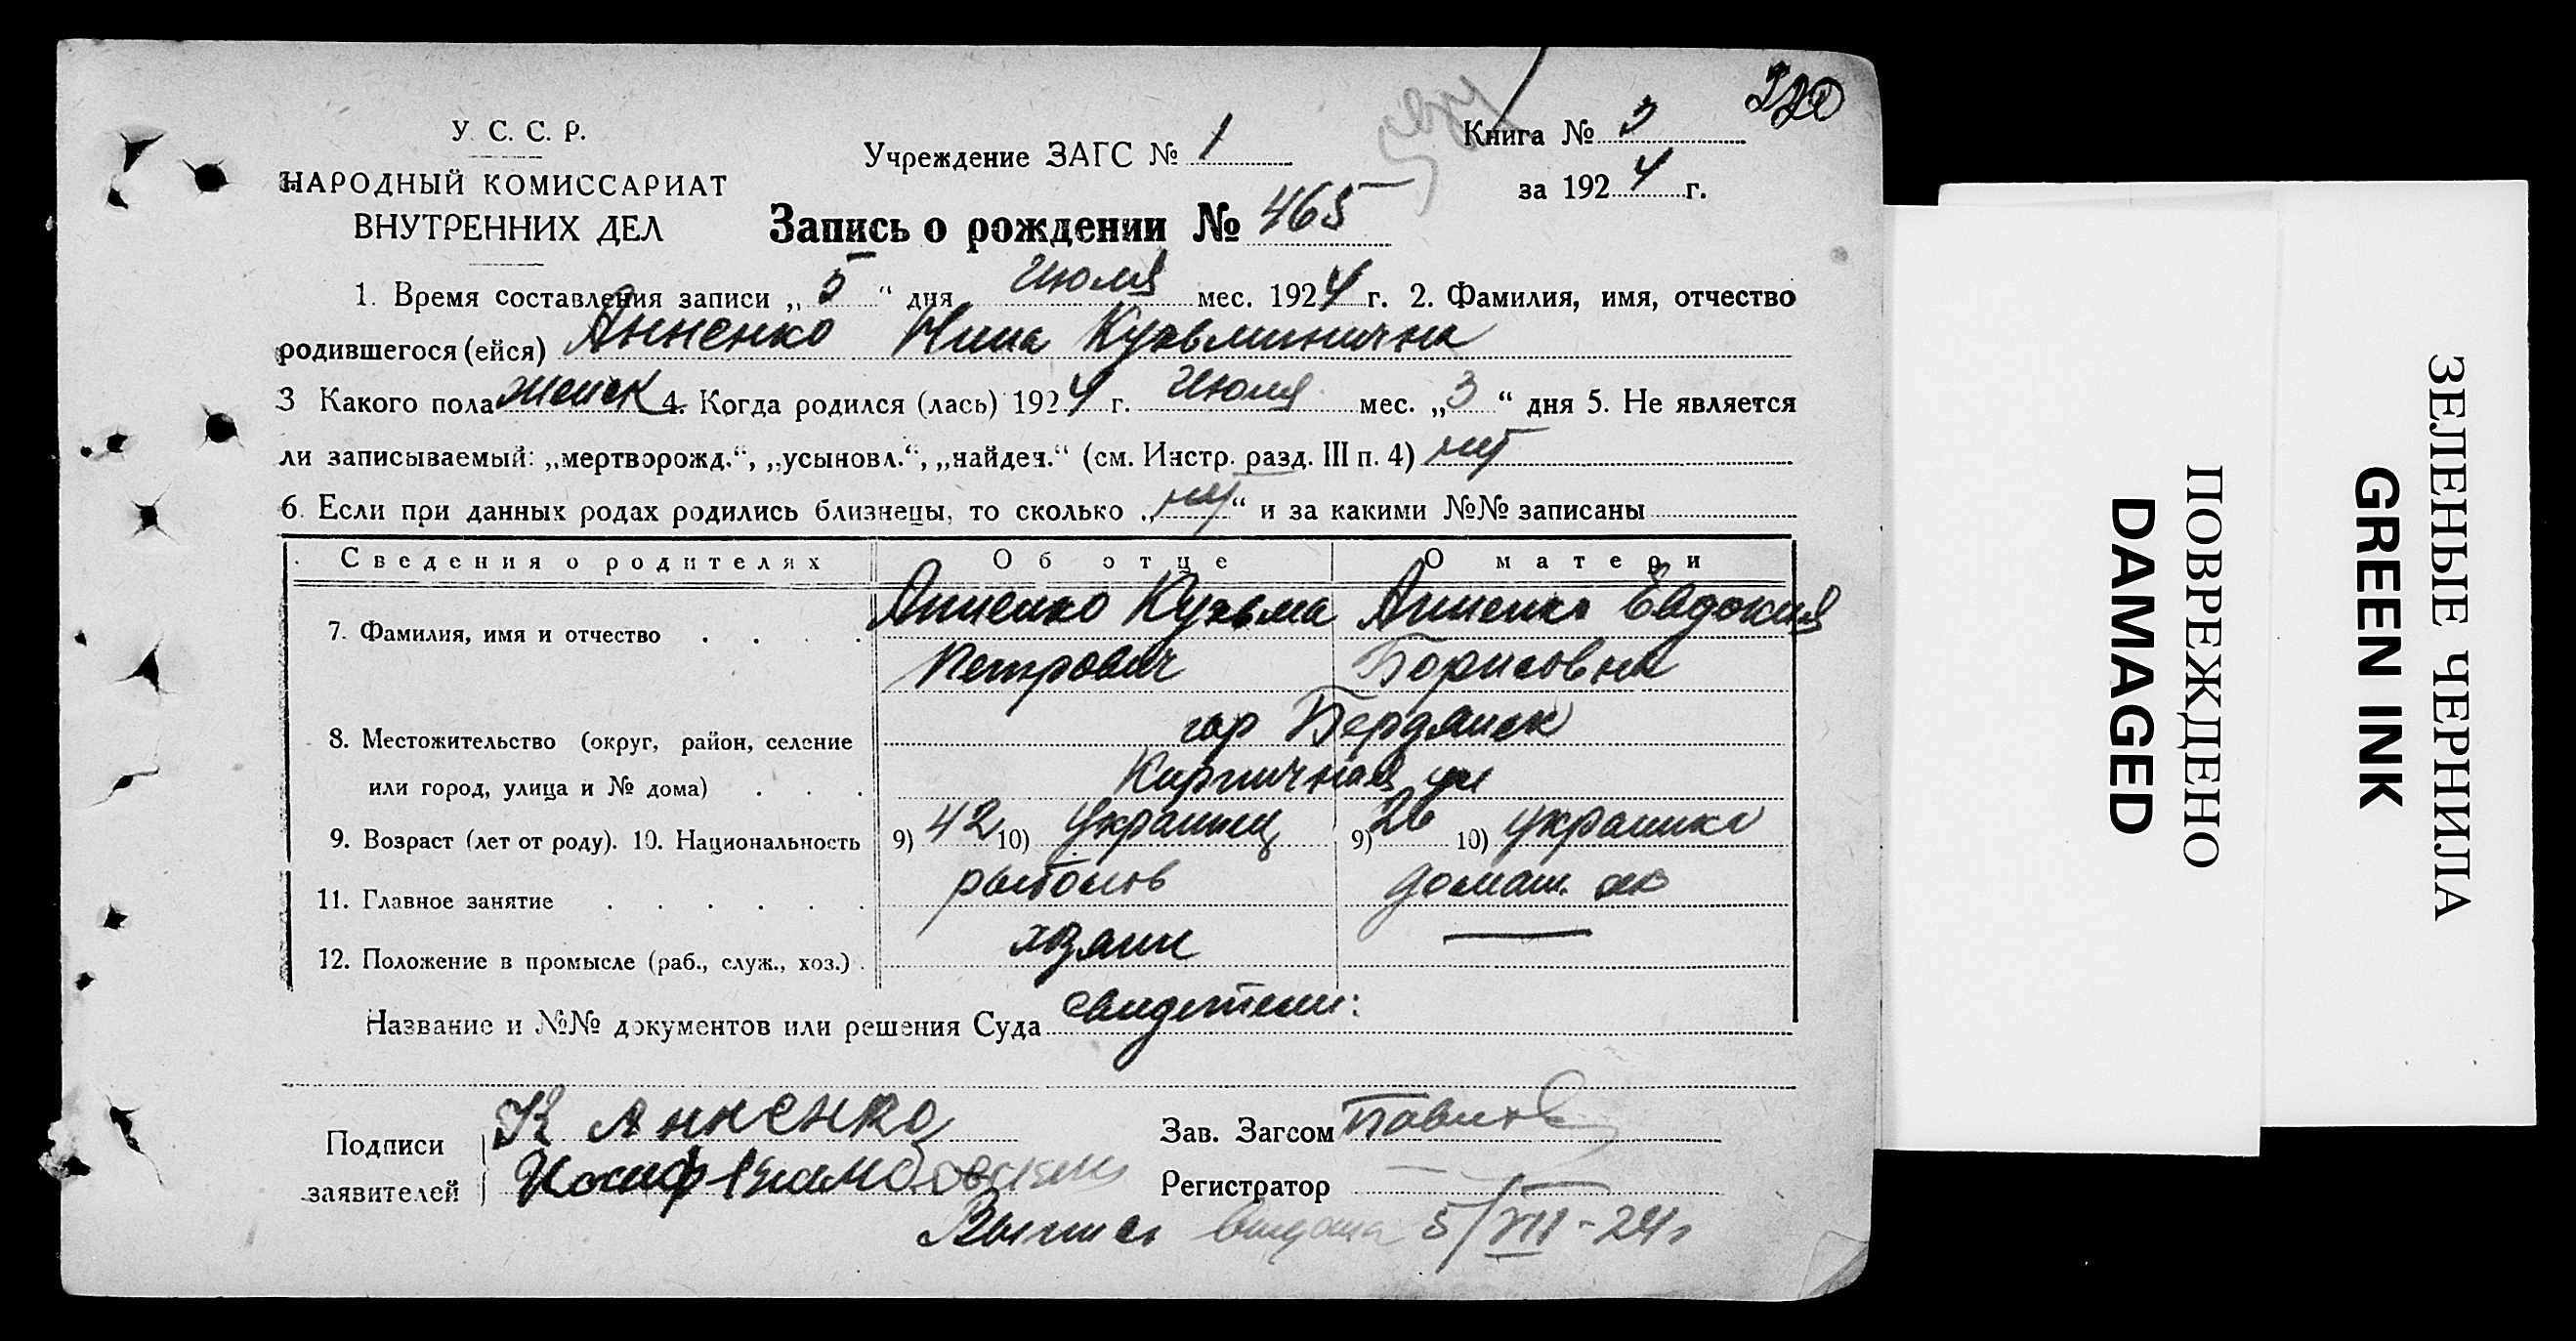 220
У. С. С. Р.
НАРОДНЫЙ КОМИССАРИАТ
ВНУТРЕННИХ ДЕЛ
Учреждение ЗАГС № 1
Книга № 3
за 1924 г.
Запись о рождении № 465
1. Время составления записи „5“ дня Июля мес. 1924 г. 2. Фамилия, имя, отчество
родившегося (ейся) Анненко Нина Кузьминична
3 Какого пола женск 4. Когда родился (лась) 1924 г. Июля мес. „3“ дня 5. Не является
ли записываемый: „мертворожд.“, „усыновл.“, „найден.“ (см. Инстр. разд. III п. 4) нет
6. Если при данных родах родились близнецы, то сколько „нет“ и за какими №№ записаны
Сведения о родителях Об отце О матери
7. Фамилия, имя и отчество . . . . Анненко Кузьма Анненко Евдокия
Петрович Борисовна
8. Местожительство (округ, район, селение гор Бердянск
или город, улица и № дома) . . . Кирпичная ул
9. Возраст (лет от роду). 10. Национальность 9) 42 10) украинец 9) 26 10) украинка
11. Главное занятие . . . . . . рыболов домаш. хоз
12. Положение в промысле (раб., служ., хоз.) . хозяин —
Название и №№ документов или решения Суда свидетели:
Подписи заявителей К Анненко
Иосиф
Зав. Загсом
Регистратор
Выпись выдана 5/VII-24г
ПОВРЕЖДЕНО
DAMAGED
ЗЕЛЕНЫЕ ЧЕРНИЛА
GREEN INK